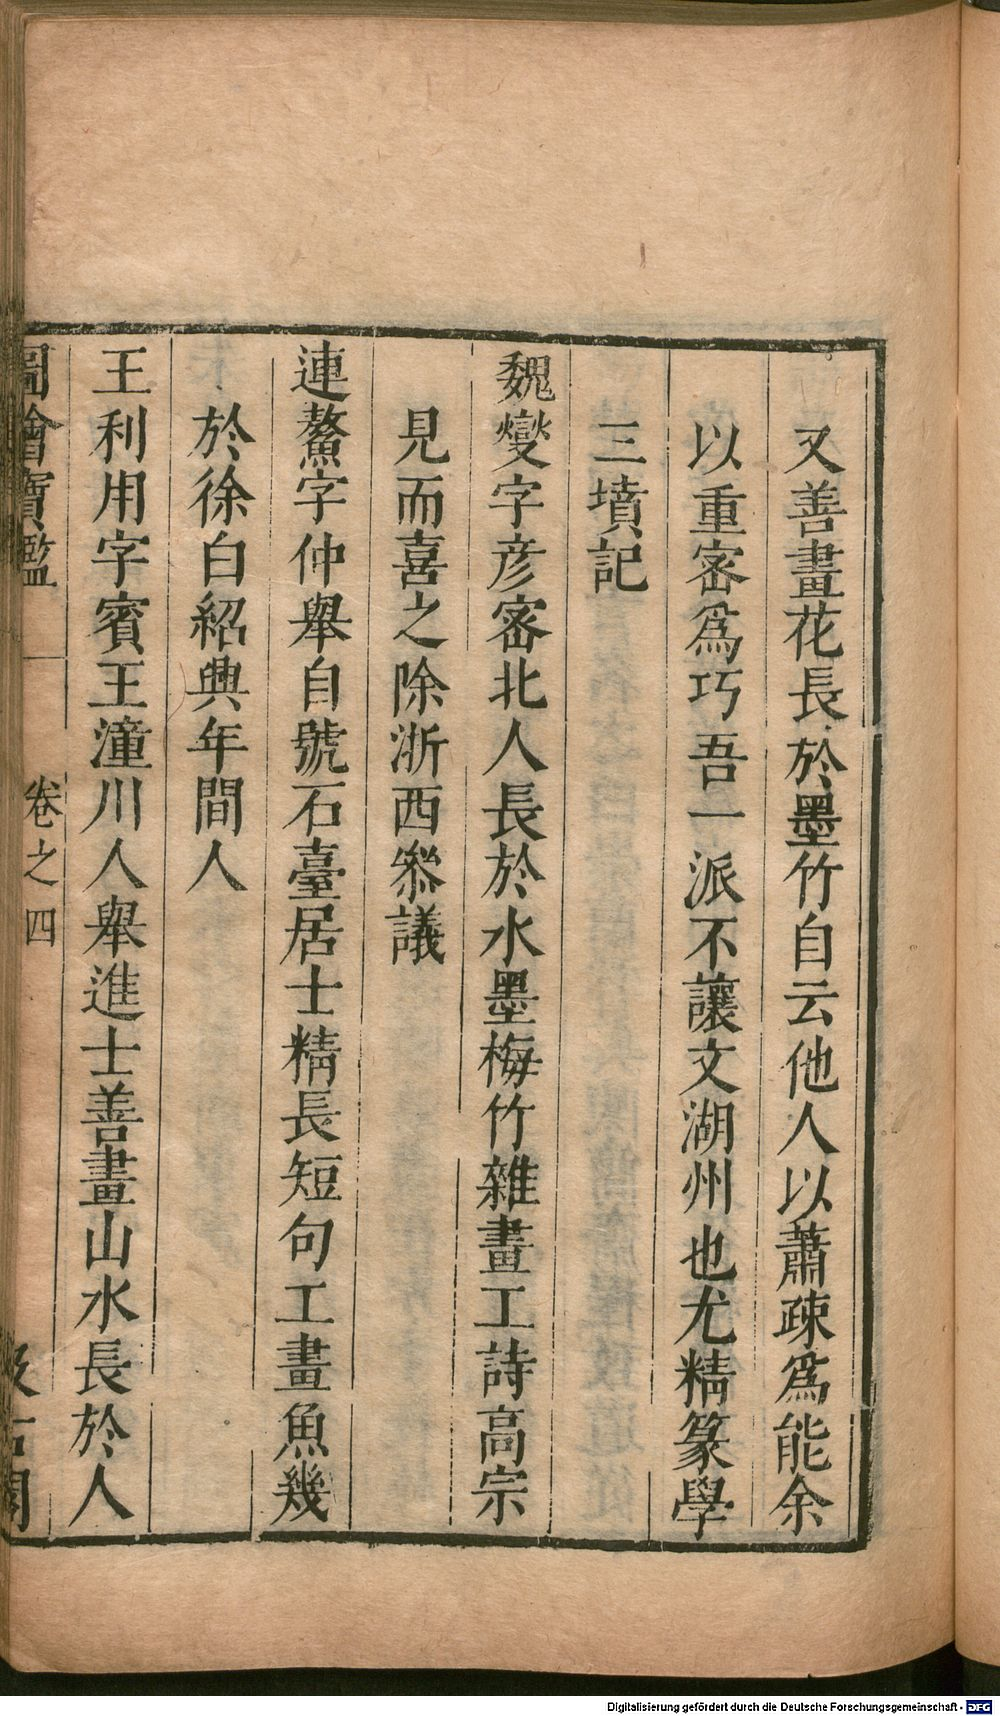 又善畫花長於墨竹自云他人以蕭疎爲能余
以重密爲巧吾一派不讓文湖州也尤精篆學
三墳記
魏燮字彥密北人長於水墨梅竹雜畫工詩高宗
見而喜之除浙西叅議
連鰲字仲舉自號石臺居士精長短句工畫魚幾
於徐白紹興年間人
王利用字賓王潼川人舉進士善畫山水長於人
圖繪寶鑑 卷之四 汲古閣
Digitalisierung gefördert durch die Deutsche Forschungsgemeinschaft - DFG